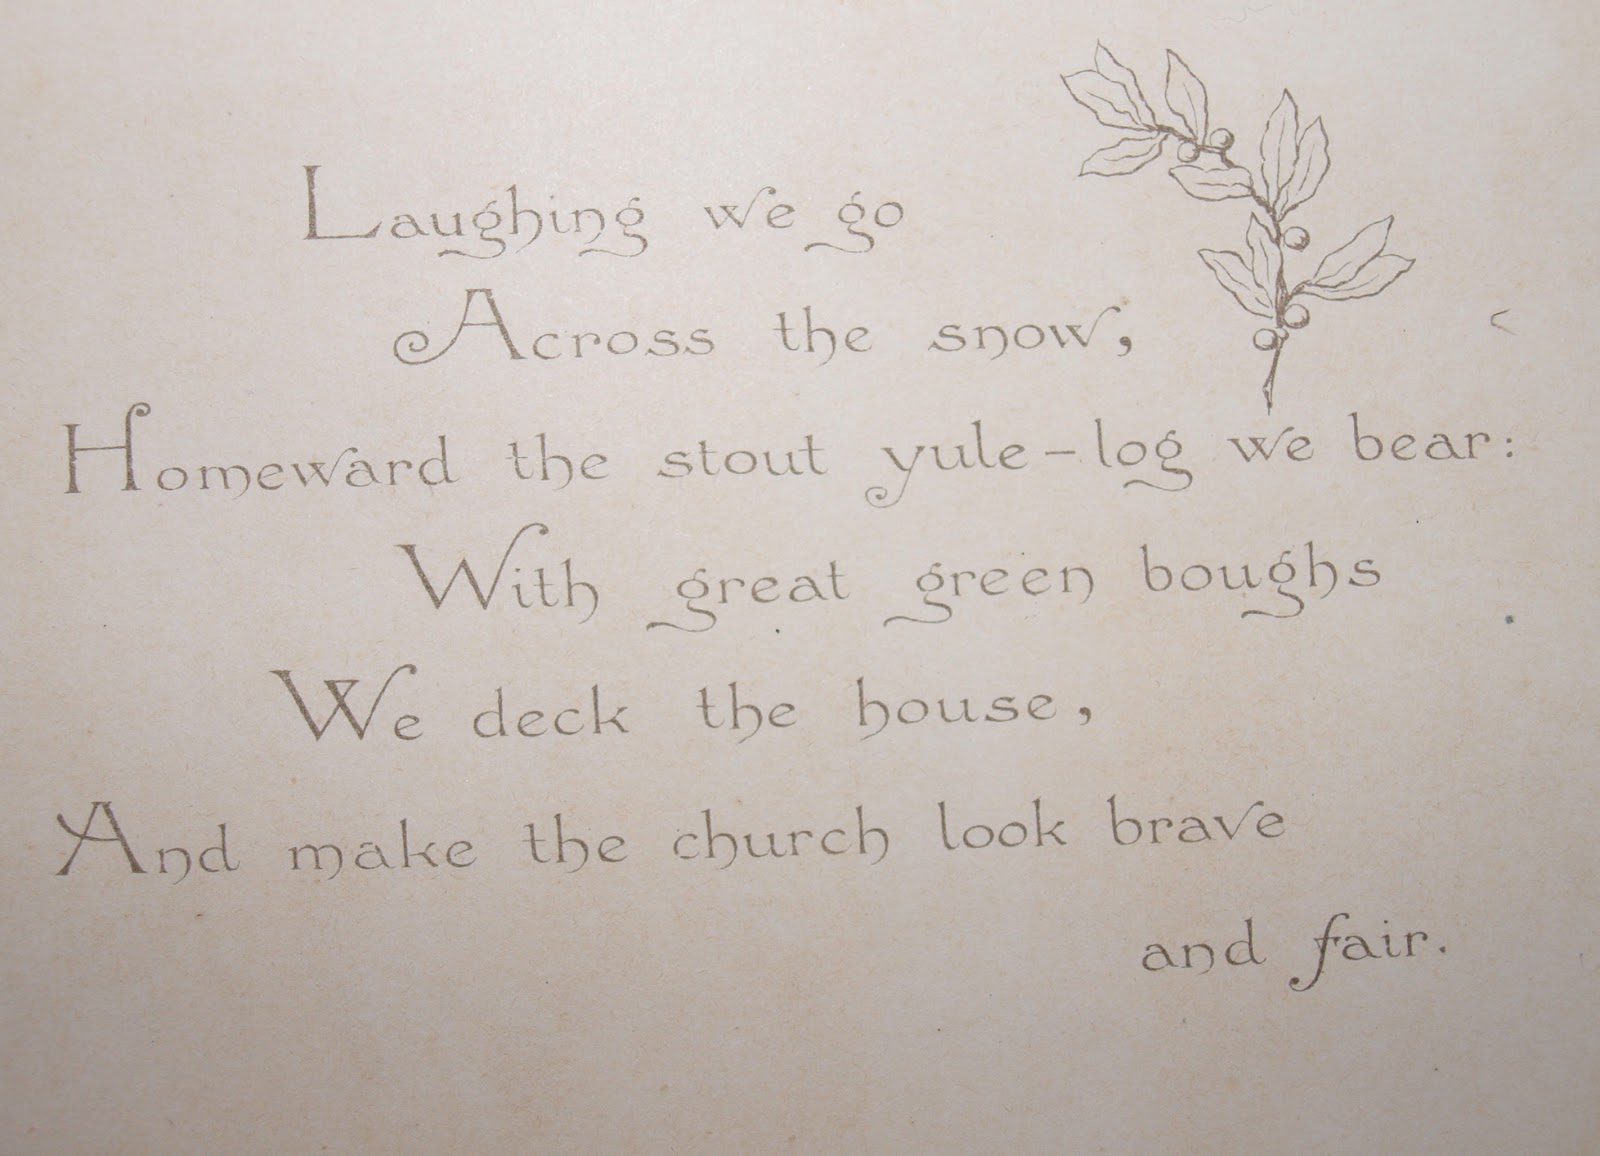 Laughing we go
Across the snow,
Homeward the stout yule-log we bear:
With great green boughs
We deck the house,
And make the church look brave
and fair.